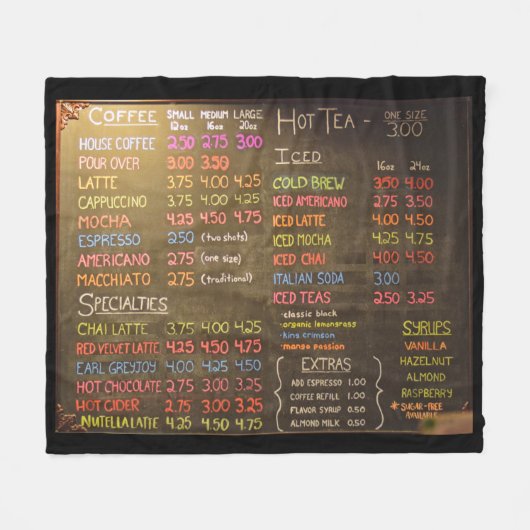 COFFEE SMALL 12oz MEDIUM 16oz LARGE 20oz
HOUSE COFFEE 2.50 2.75 3.00
POUR OVER 3.00 3.50
LATTE 3.75 4.00 4.25
CAPPUCCINO 3.75 4.00 4.25
MOCHA 4.25 4.50 4.75
ESPRESSO 2.50 (two shots)
AMERICANO 2.75 (one size)
MACCHIATO 2.75 (traditional)
SPECIALTIES
CHAI LATTE 3.75 4.00 4.25
RED VELVET LATTE 4.25 4.50 4.75
EARL GREYJOY 4.00 4.25 4.50
HOT CHOCOLATE 2.75 3.00 3.25
HOT CIDER 2.75 3.00 3.25
NUTELLA LATTE 4.25 4.50 4.75
HOT TEA - ONE SIZE 3.00
ICED 16oz 24oz
COLD BREW 3.50 4.00
ICED AMERICANO 2.75 3.50
ICED LATTE 4.00 4.50
ICED MOCHA 4.25 4.75
ICED CHAI 4.00 4.50
ITALIAN SODA 3.00
ICED TEAS 2.50 3.25
-classic black
-organic lemongrass
-king crimson
-mango passion
EXTRAS
ADD ESPRESSO 1.00
COFFEE REFILL 1.00
FLAVOR SYRUP 0.50
ALMOND MILK 0.50
SYRUPS
VANILLA
HAZELNUT
ALMOND
RASPBERRY
*SUGAR-FREE
AVAILABLE